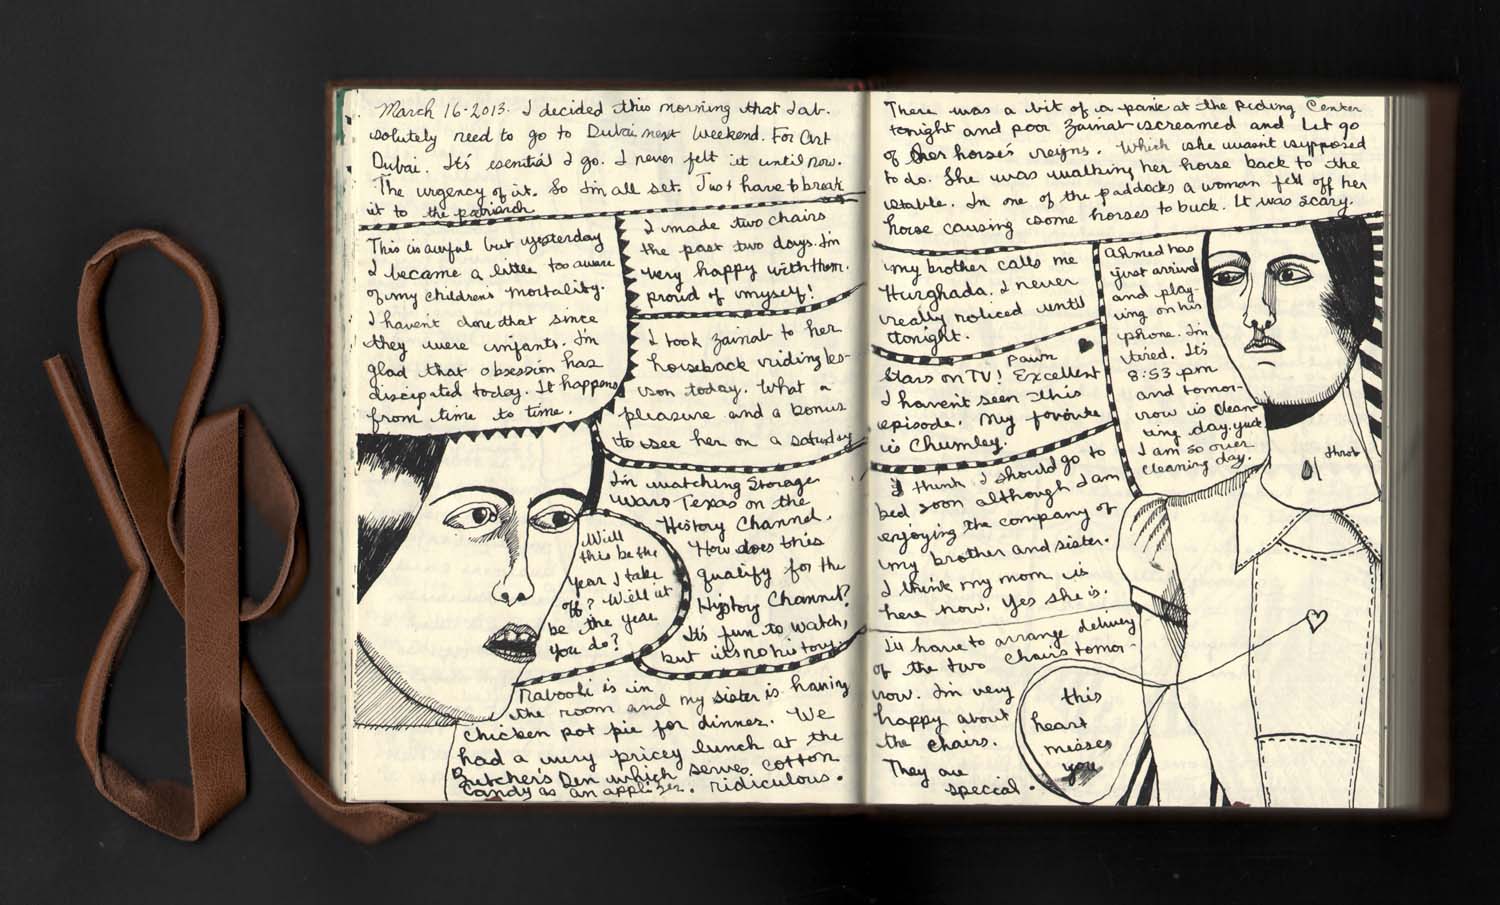 March 16-2013. I decided this morning that I ab-
solutely need to go to Dubai next weekend. For Art
Dubai. It's esential I go. I never felt it until now.
The urgency of it. So I'm all set. Just have to break
it to the patriarch
This is awful but yesterday
I became a little too aware
of my childrens mortality.
I haven't done that since
they were infants. I'm
glad that obsession has
discipated today. It happens
from time to time.
I made two chairs
the past two days. I'm
very happy with them.
proud of myself!
I took Zainab to her
horseback riding les-
son today. What a
pleasure and a bonus
to see her on a saturday
I'm watching Storage
Wars Texas on the
History Channel.
How does this
qualify for the
History Channel?
It's fun to watch,
but it's no history.
Will
this be the
year I take
off? Will it
be the year
you do?
is in
the room and my sister is having
chicken pot pie for dinner. We
had a very pricey lunch at the
Butcher's Den which serves cotton
candy as an appetizer. ridiculous.
There was a bit of a panic at the Riding Center
tonight and poor Zainab screamed and let go
of her horse's reigns. Which she wasnt supposed
to do. She was walking her horse back to the
stable. In one of the paddocks a woman fell off her
horse causing some horses to buck. It was scary.
my brother calls me
Hurghada. I never
really noticed until
tonight.
Pawn
Stars on TV! Excellent
I haven't seen this
episode. My favorite
is Chumley.
I think I should go to
bed soon although I am
enjoying the company of
my brother and sister.
I think my mom is
here now. Yes she is.
I'll have to arrange delivery
of the two chairs tomor-
row. I'm very
happy about
the chairs.
They are
special.
Ahmed has
just arrived
and play-
ing on his
phone. I'm
tired. It's
8:53 pm
and tomor-
row is clean-
ing day. yuck
I am so over
cleaning day.
throb
this
heart
misses
you